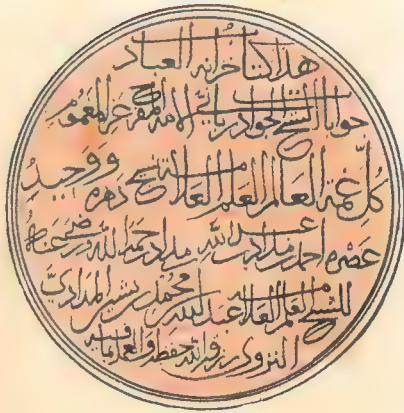 هذا كتاب خزانة العباد
جوابات الشيخ جواد رباني الامة المفرج عن المغموم
كل غمة العالم العلم العلامة شيخ دهره ووحيد
عصره احمد بن مداد بن عبدالله بن مداد رحمه الله ورضي عنه
للشيخ العالم العلامة عبدالله بن محمد بن بشير المدادي
النزوي رزقه الله حفظه والعمل بما فيه